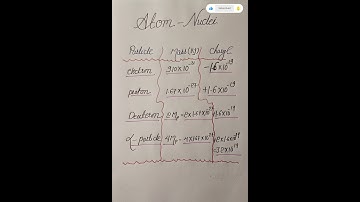 Atom - Nuclei
Particle Mass (Kg) Charge
electron 9.10×10⁻³¹ -1.6×10⁻¹⁹
proton 1.67×10⁻²⁷ +1.6×10⁻¹⁹
Deuteron 2Mp=2×1.67×10⁻²⁷ +1.6×10⁻¹⁹
α-particle 4Mp=4×1.67×10⁻²⁷ +2×1.6×10⁻¹⁹
=3.2×10⁻¹⁹